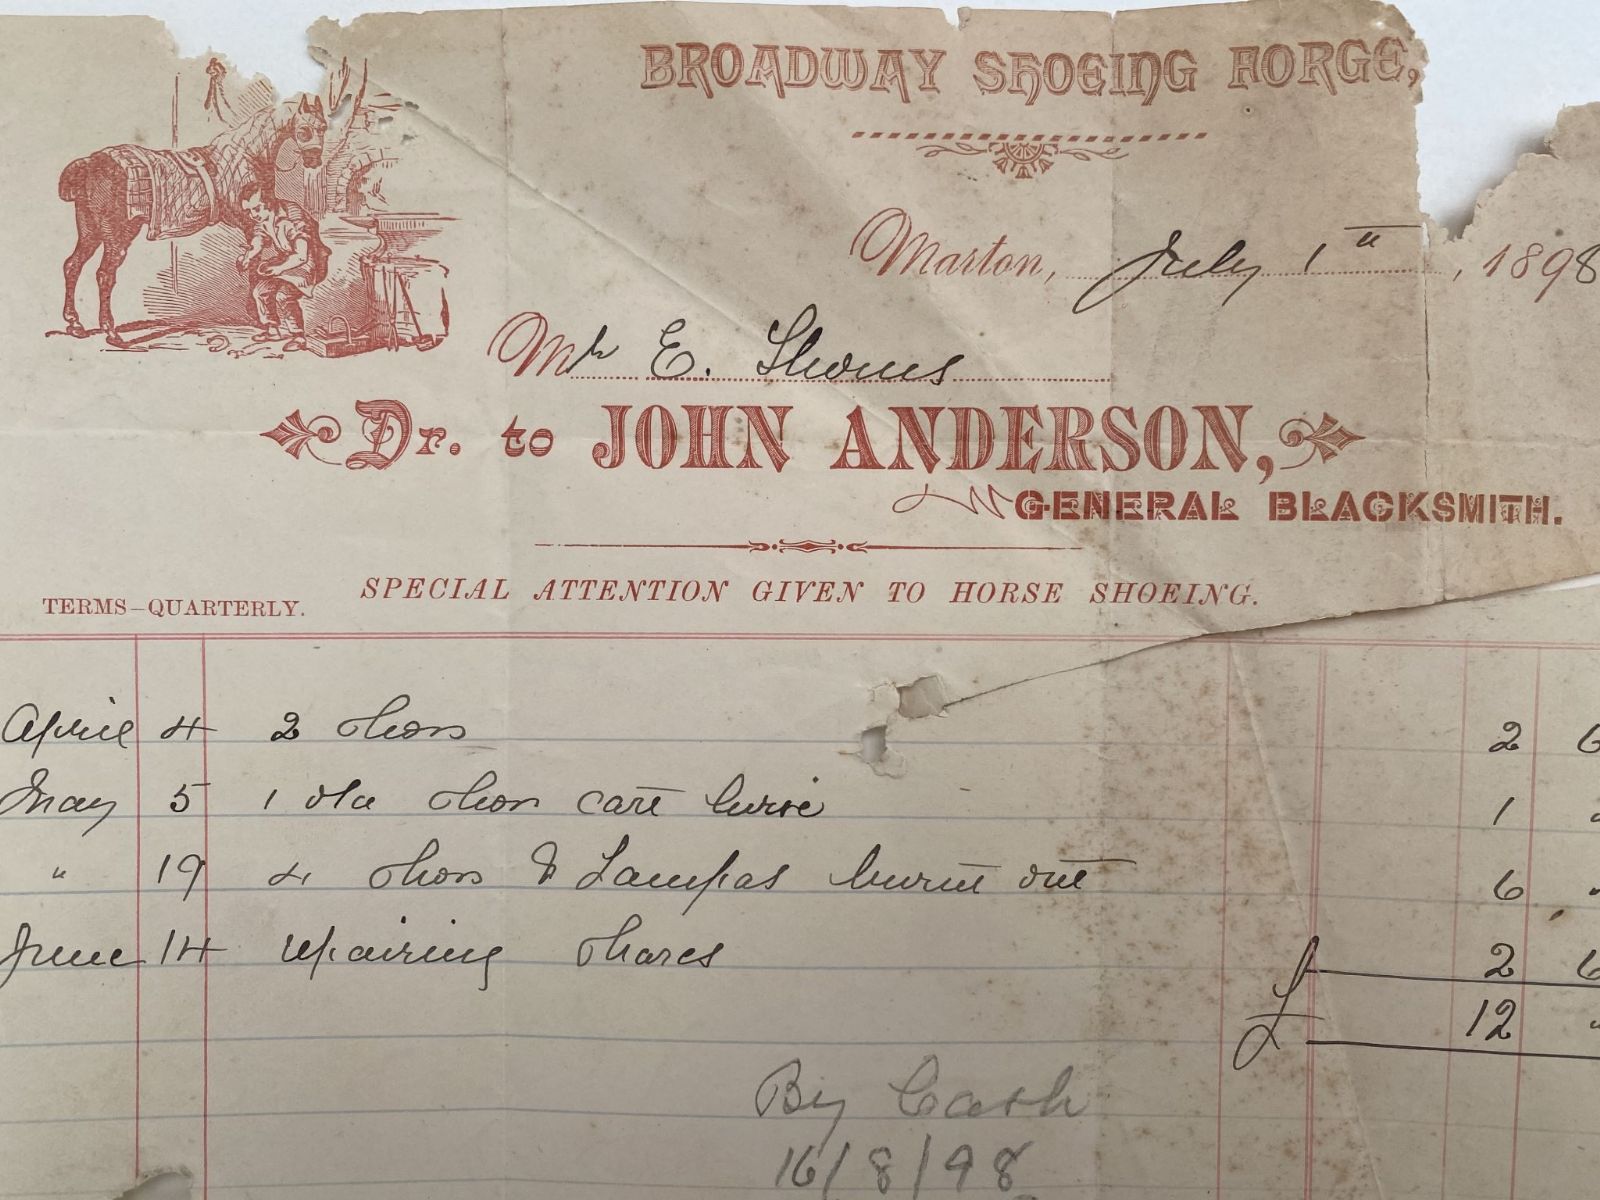 BROADWAY SHOEING FORGE,
Marton, July 1st, 1898
Mr E. Shoms
Dr. to JOHN ANDERSON,
GENERAL BLACKSMITH.
SPECIAL ATTENTION GIVEN TO HORSE SHOEING.
TERMS—QUARTERLY.
April 4 2 shoes 2 6
May 5 1 old shoe cart horse 1
" 19 4 shoes & Lampas burnt out 6 "
June 14 repairing shares 2 6
£ 12 "
By Cash
16/8/98